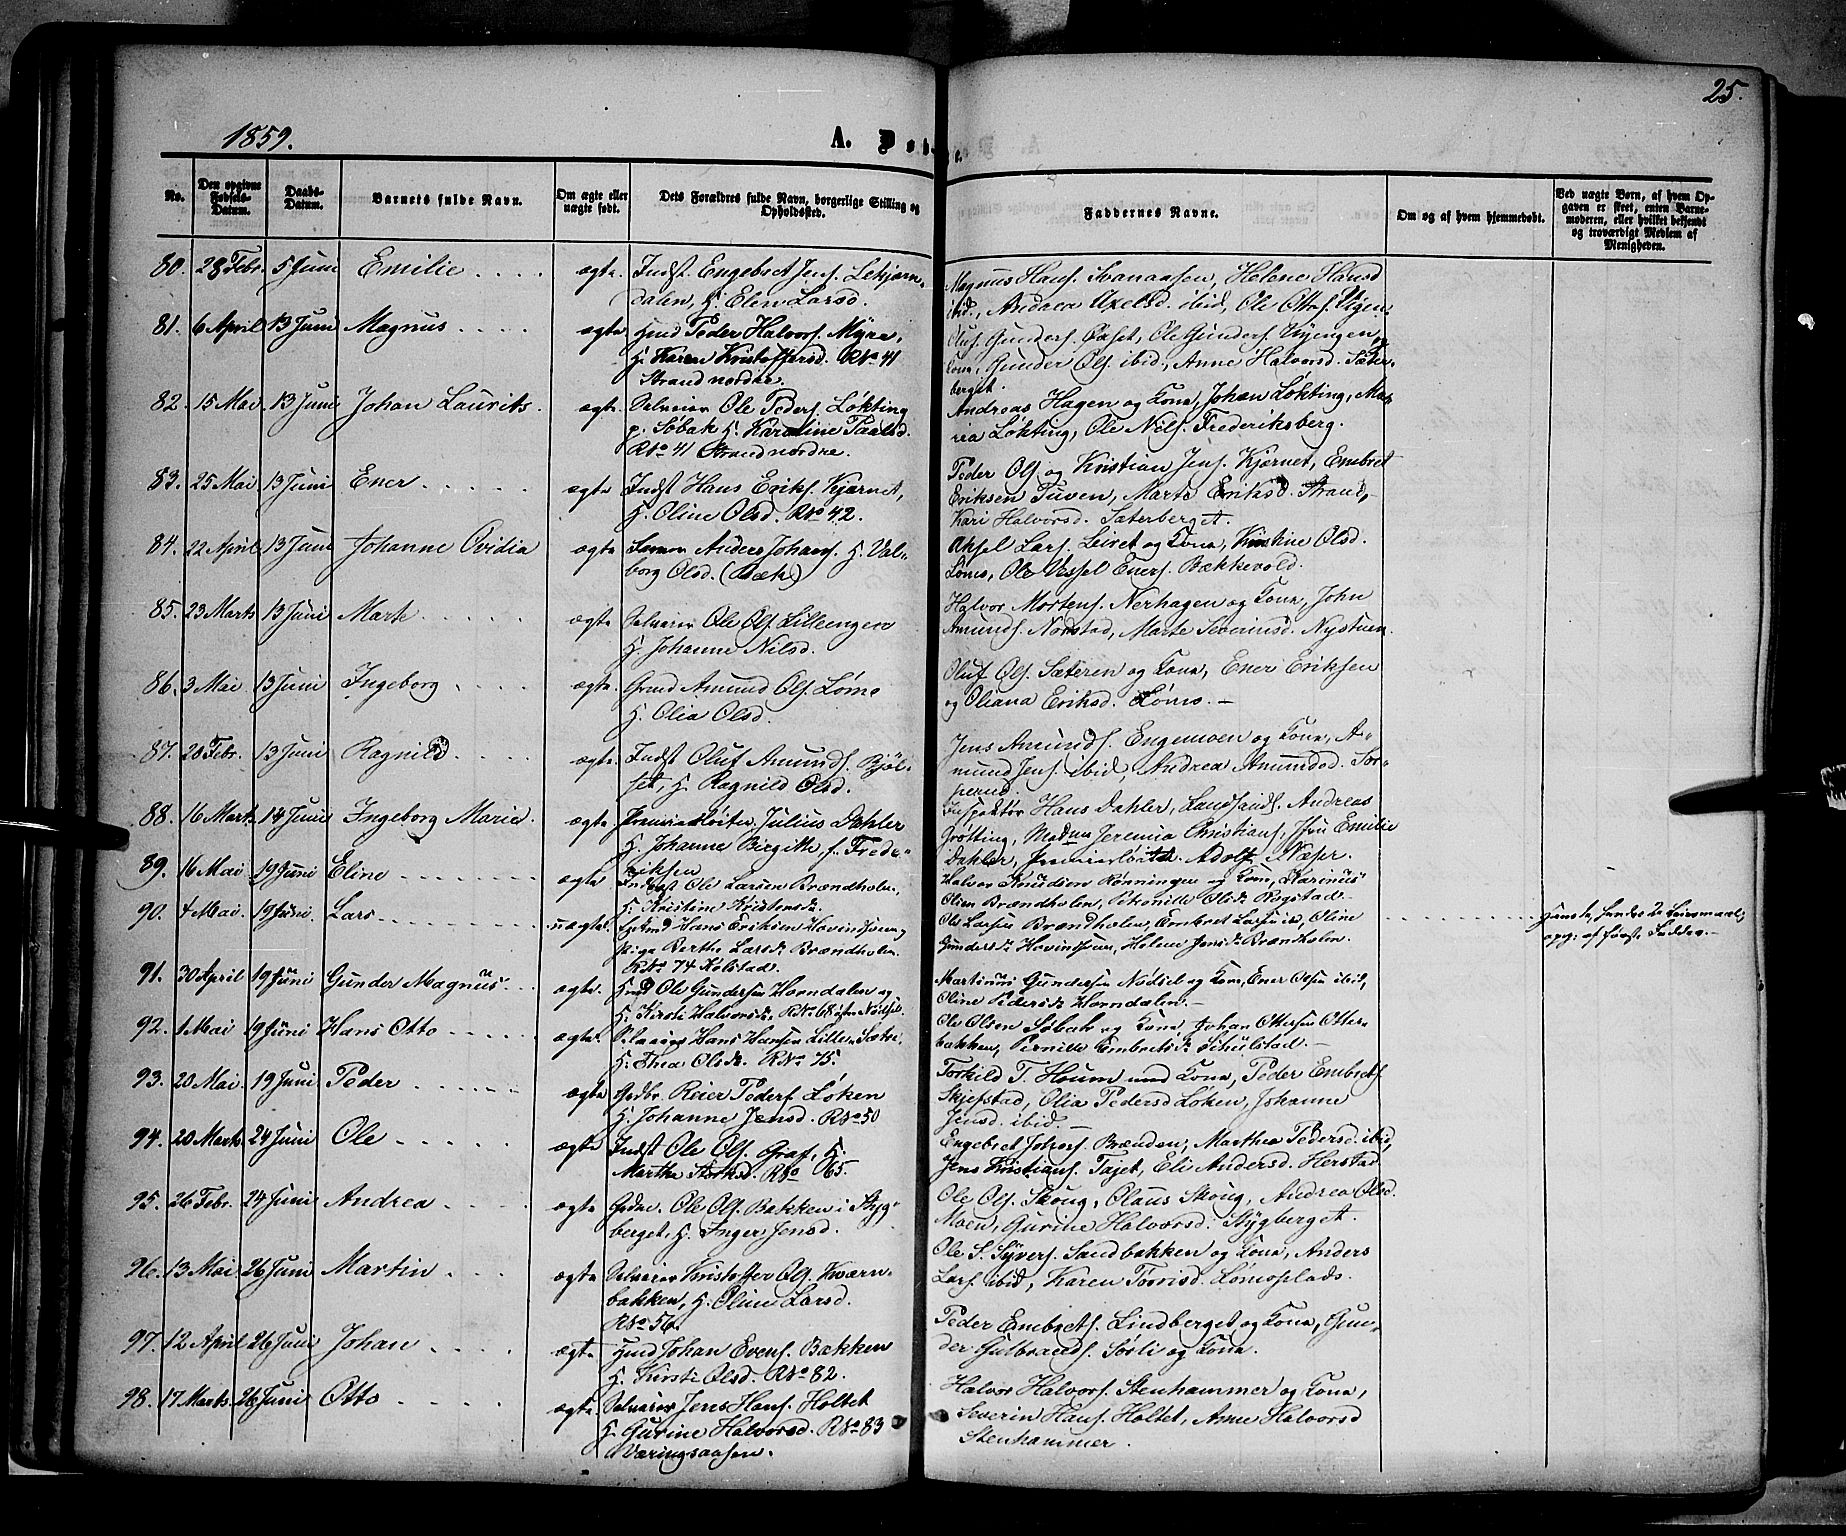 25.
1859.
A. Døbte.
No.
Den opgivne Fødsels-Datum.
Daabs-Datum.
Barnets fulde Navn.
Om ægte eller uægte født.
Dets Forældres fulde Navn, borgerlige Stilling og Opholdssted.
Faddernes Navne.
Om og af hvem hjemmedøbt.
Ved uægte Børn, af hvem Opgaven er skeet, enten Barnemoderen, eller hvilket bekjendt og troværdigt Medlem af Menigheden.
80. 28 Febr. 5 Juni Emilie ægte.
Indst Engebret Jens.
dalen, H. Elen Larsd.
Magnus Hans. Svenaasen, Helene Hansd
ibid, Andrea Axelsd. ibid, Ole Ottos.
81. 6 April 13 Juni Magnus ægte
Hmd Peder Halvors. Myra,
H. Karen Kristoffersd. RNo 41
Strand nordre.
Oluf Gunders. Oxset, Ole Gunders. Kyengen og
Kone, Gunder Ols. ibid, Anne Halvorsd. Sæter-
berget.
82. 15 Mai 13 Juni Johan Laurits. ægte
Selveier Ole Peders. Løkting
p. Sobak H. Karoline Paalsd.
RNo 41 Strand nordre.
Andreas Hagen og Kone, Johan Løkting, Ma-
ria Løkting, Ole Nils. Frederiksberg.
83. 25 Mai 13 Juni Ener ægte
Indst Hans Eriks. Kjernet,
H. Oline Olsd. RNo 42.
Peder Ols. og Kristian Jens. Kjernet, Embret
Eriksen Tuven, Marte Eriksd. Strand,
Kari Halvorsd. Sæterberget.
84. 22 April 13 Juni Johanne Ovidia ægte
Anders Johans. H. Val-
borg Olsd. (Bæk)
Aksel Lars. Leiret og Kone, Kirstine Olsd.
Lømo, Ole Vessel Eners. Bækkevold.
85. 23 Marts 13 Juni Mark ægte
Selveier Ole Ols. Lilleengen
H. Johanne Nilsd.
Halvor Mortens. Nerhagen og Kone, John
Amunds. Nordstad, Marte Severinsd. Nystuen.
86. 3 Mai 13 Juni Ingeborg ægte
Grmd Amund Ols. Lømo
H. Olia Olsd.
Oluf Ols. Sæteren og Kone, Ener Eriksen
og Oliana Eriksd. Lømo. —
87. 20 Febr. 13 Juni Ragnild ægte.
Indst Oluf Amunds. Bjøl-
set, H. Ragnild Olsd.
Jens Amunds. Engemoen og Kone, A-
mund Jens. ibid, Andrea Amundsd. Sør-
88. 16 Marts 14 Juni Ingeborg Marie ægte
Premierløitn. Julius Dahler
H. Johanne Birgitte, f. Frede-
riksen
Inspektør Hans Dahler, Landhandl. Andreas
Grøtting, Madm Jeremia Christians., Jfru Emilie
Dahler, Premierløitn. Adolf Næser.
89. 16 Mai 19 Juni Eline ægte
Indst Ole Larsen Brændholen,
H. Kristine Kristensd.
Halvor Knudsen Rønningen og Kone, Karinus
Olsen Brændholen, Petronille Olsdr. Rogstad.
90. 4 Mai. 19 Juni. Lars uægte
Hans Eriksen og
pige Berthe Larsdr Brændholen.
RNo 74 Kolstad.
Ole Larsen Brændholen, Embret Larsen ibid, Oline
Gundersdr, Helene Jensdr Brændholen.
Hendes 2. Leiermaal,
opg. af første Fadder. —
91. 30 April 19 Juni Gunder Magnus ægte.
Hmd Ole Gundersen Horndalen og
H. Kirsti Halvorsdr. RNo 68
Martinus Gundersen Nødset og Kone, Ener Olsen ibid,
Oline Pedersdr Horndalen. —
92. 1 Mai 19 Juni Hans Otto ægte.
Selveier Hans Hansen Lillesætre,
H. Olsdr. RNo 75.
Ole Olsen Sobak og Kone, Johan Ottersen Otter-
bakken, Pernille Embretsdr. —
93. 20 Mai 19 Juni Peder ægte
Gbr. Reier Peders. Løken
H. Johanne Jensd. RNo 50
Torkild T. Houm med Kone, Peder Embrets.
Skjefstad, Olia Pedersd Løken, Johanne
Jensd. ibid. —
94. 20 Marts 24 Juni Ole ægte
Indst Ole Ols. Graf, H.
Marthe RNo 65.
Engebret Brænden, Marthea Pedersd. ibid,
Jens Kristians. Tajet, Eli Andersd. Herstad
95. 26 Febr. 24 Juni Andrea ægte
Ole Ols. Bakken i Styg-
berget, H. Inger Jensd.
Ole Ols. Skoug, Olaus Skoug, Andrea Olsd.
Moen, Gurine Halvorsd. Stygberget.
96. 13 Mai 26 Juni Martin ægte
Selveier Kristoffer Ols. Kværn-
bakken, H. Oline Larsd.
RNo 56.
Ole S. Syvers. Sandbakken og Kone, Anders
Lars. ibid, Karen Torrisd. Lømoplads.
97. 12 April 26 Juni Johan ægte
Hmd Johan Evens. Bakken
H. Kirsti Olsd. RNo 82.
Peder Embrets. Lindberget og Kone, Gun-
der Gulbrands. Sørli og Kone.
98. 17 Marts 26 Juni Otto ægte
Selveier Jens Hans. Holtet
H. Gurine Halvorsd. RNo 83
Væringsaasen.
Halvor Halvors. Stenhammer og Kone,
Severin Hans. Holtet, Anne Halvorsd
Stenhammer.